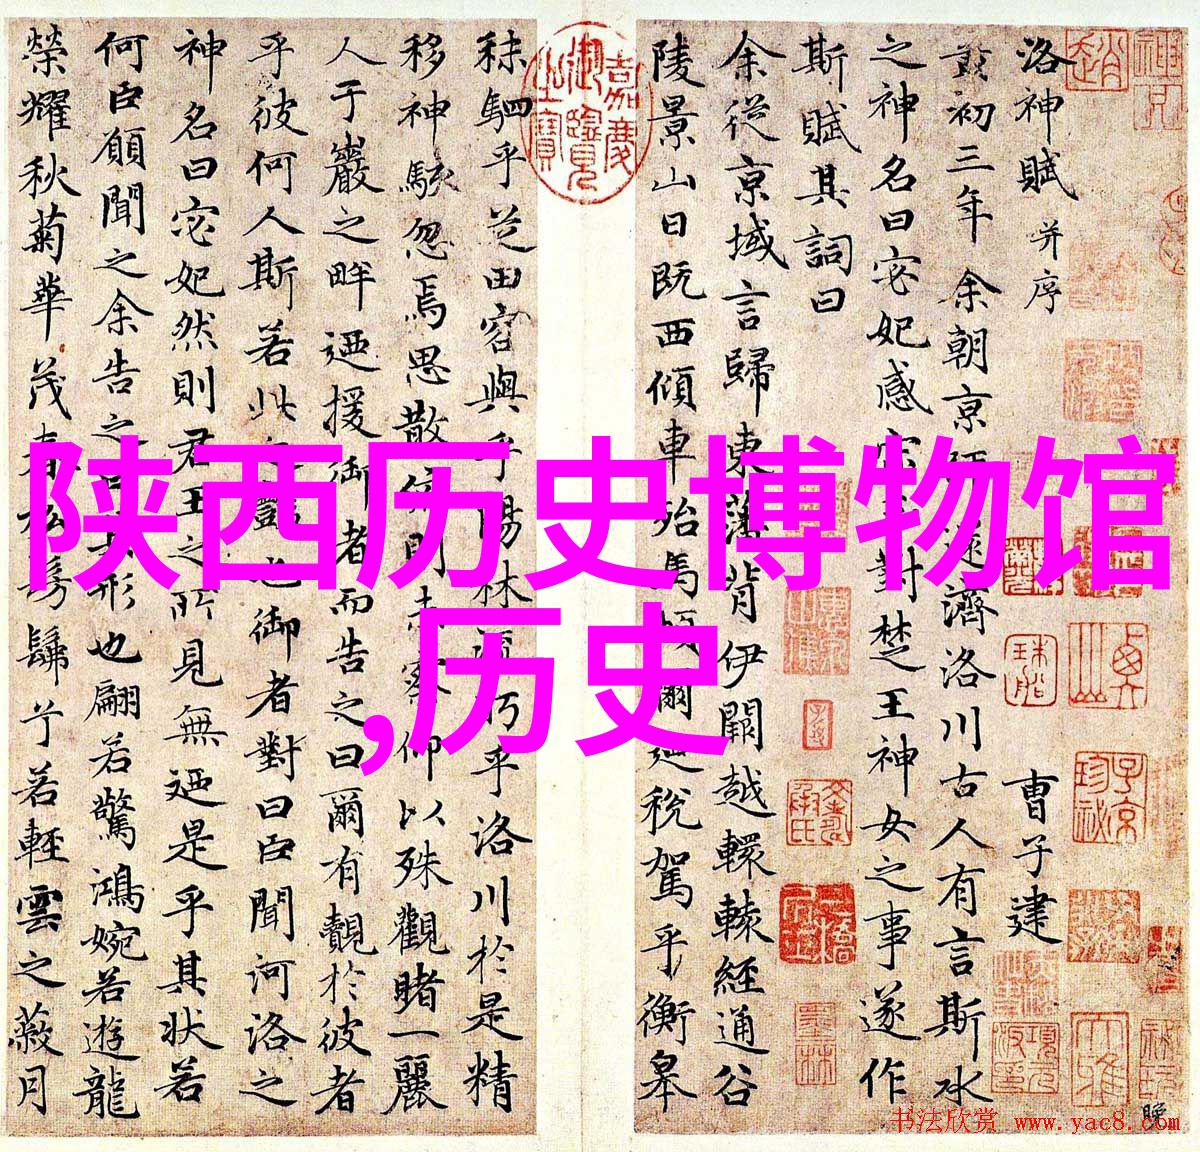 陕西历史博物馆
,历史
洛神賦 并序 曹子建
初三年余朝京濟洛川古人有言斯水
之神名曰宓妃感宋對楚王神女之事遂作
斯賦其詞曰
余從京域言歸東藩背伊闕越轘轅經通谷
陵景山日既西傾車殆馬稅駕乎衡皋
秣駟乎芝田容與乎陽林乎洛川於是精
移神駭忽焉思散察仰以殊觀睹一麗
人于巖之畔迺援御者而告之曰爾有覿於彼者
乎彼何人斯若此也御者對曰臣聞河洛之
神名曰宓妃然則君王之所見無迺是乎其狀若
何臣願聞之余告之形也翩若驚鴻婉若遊龍
榮耀秋菊華茂春松髣髴兮若輕雲之蔽月
嘉慶御覽之寶
书法欣赏 www.yac8.com